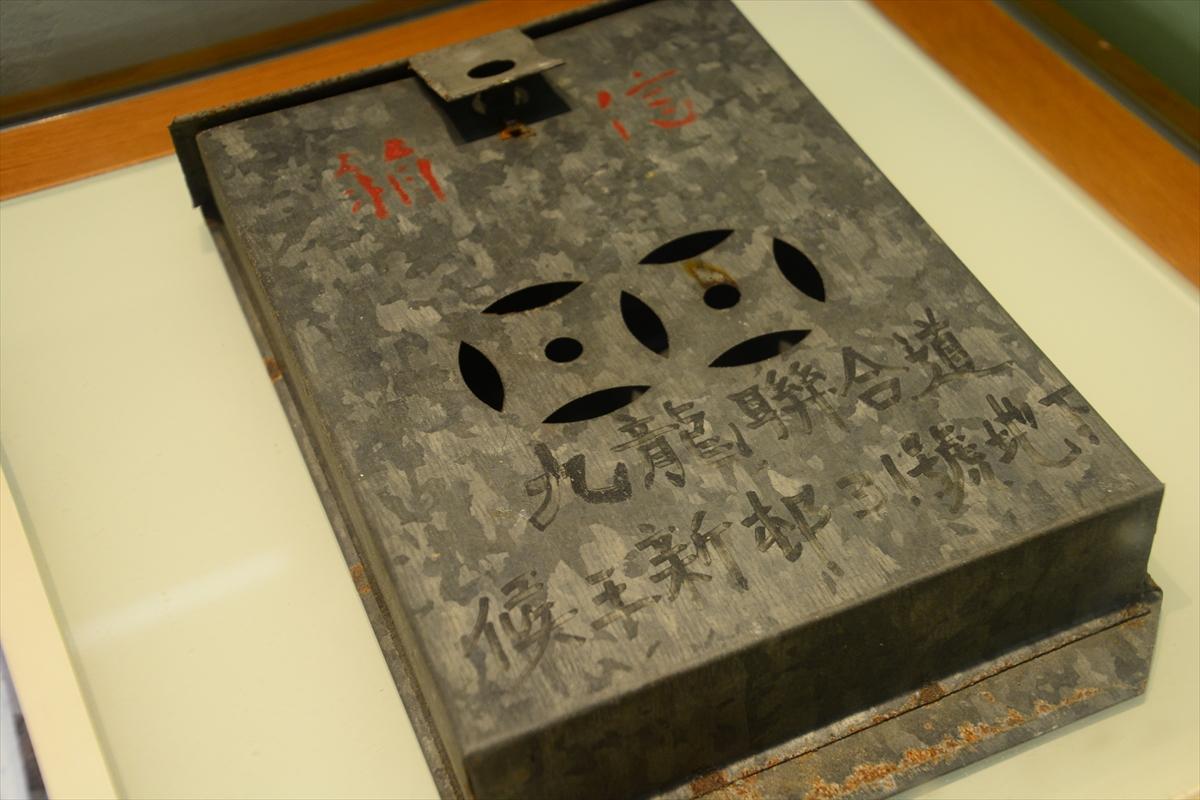 信箱
九龍聯合道
候王新邨31號地下